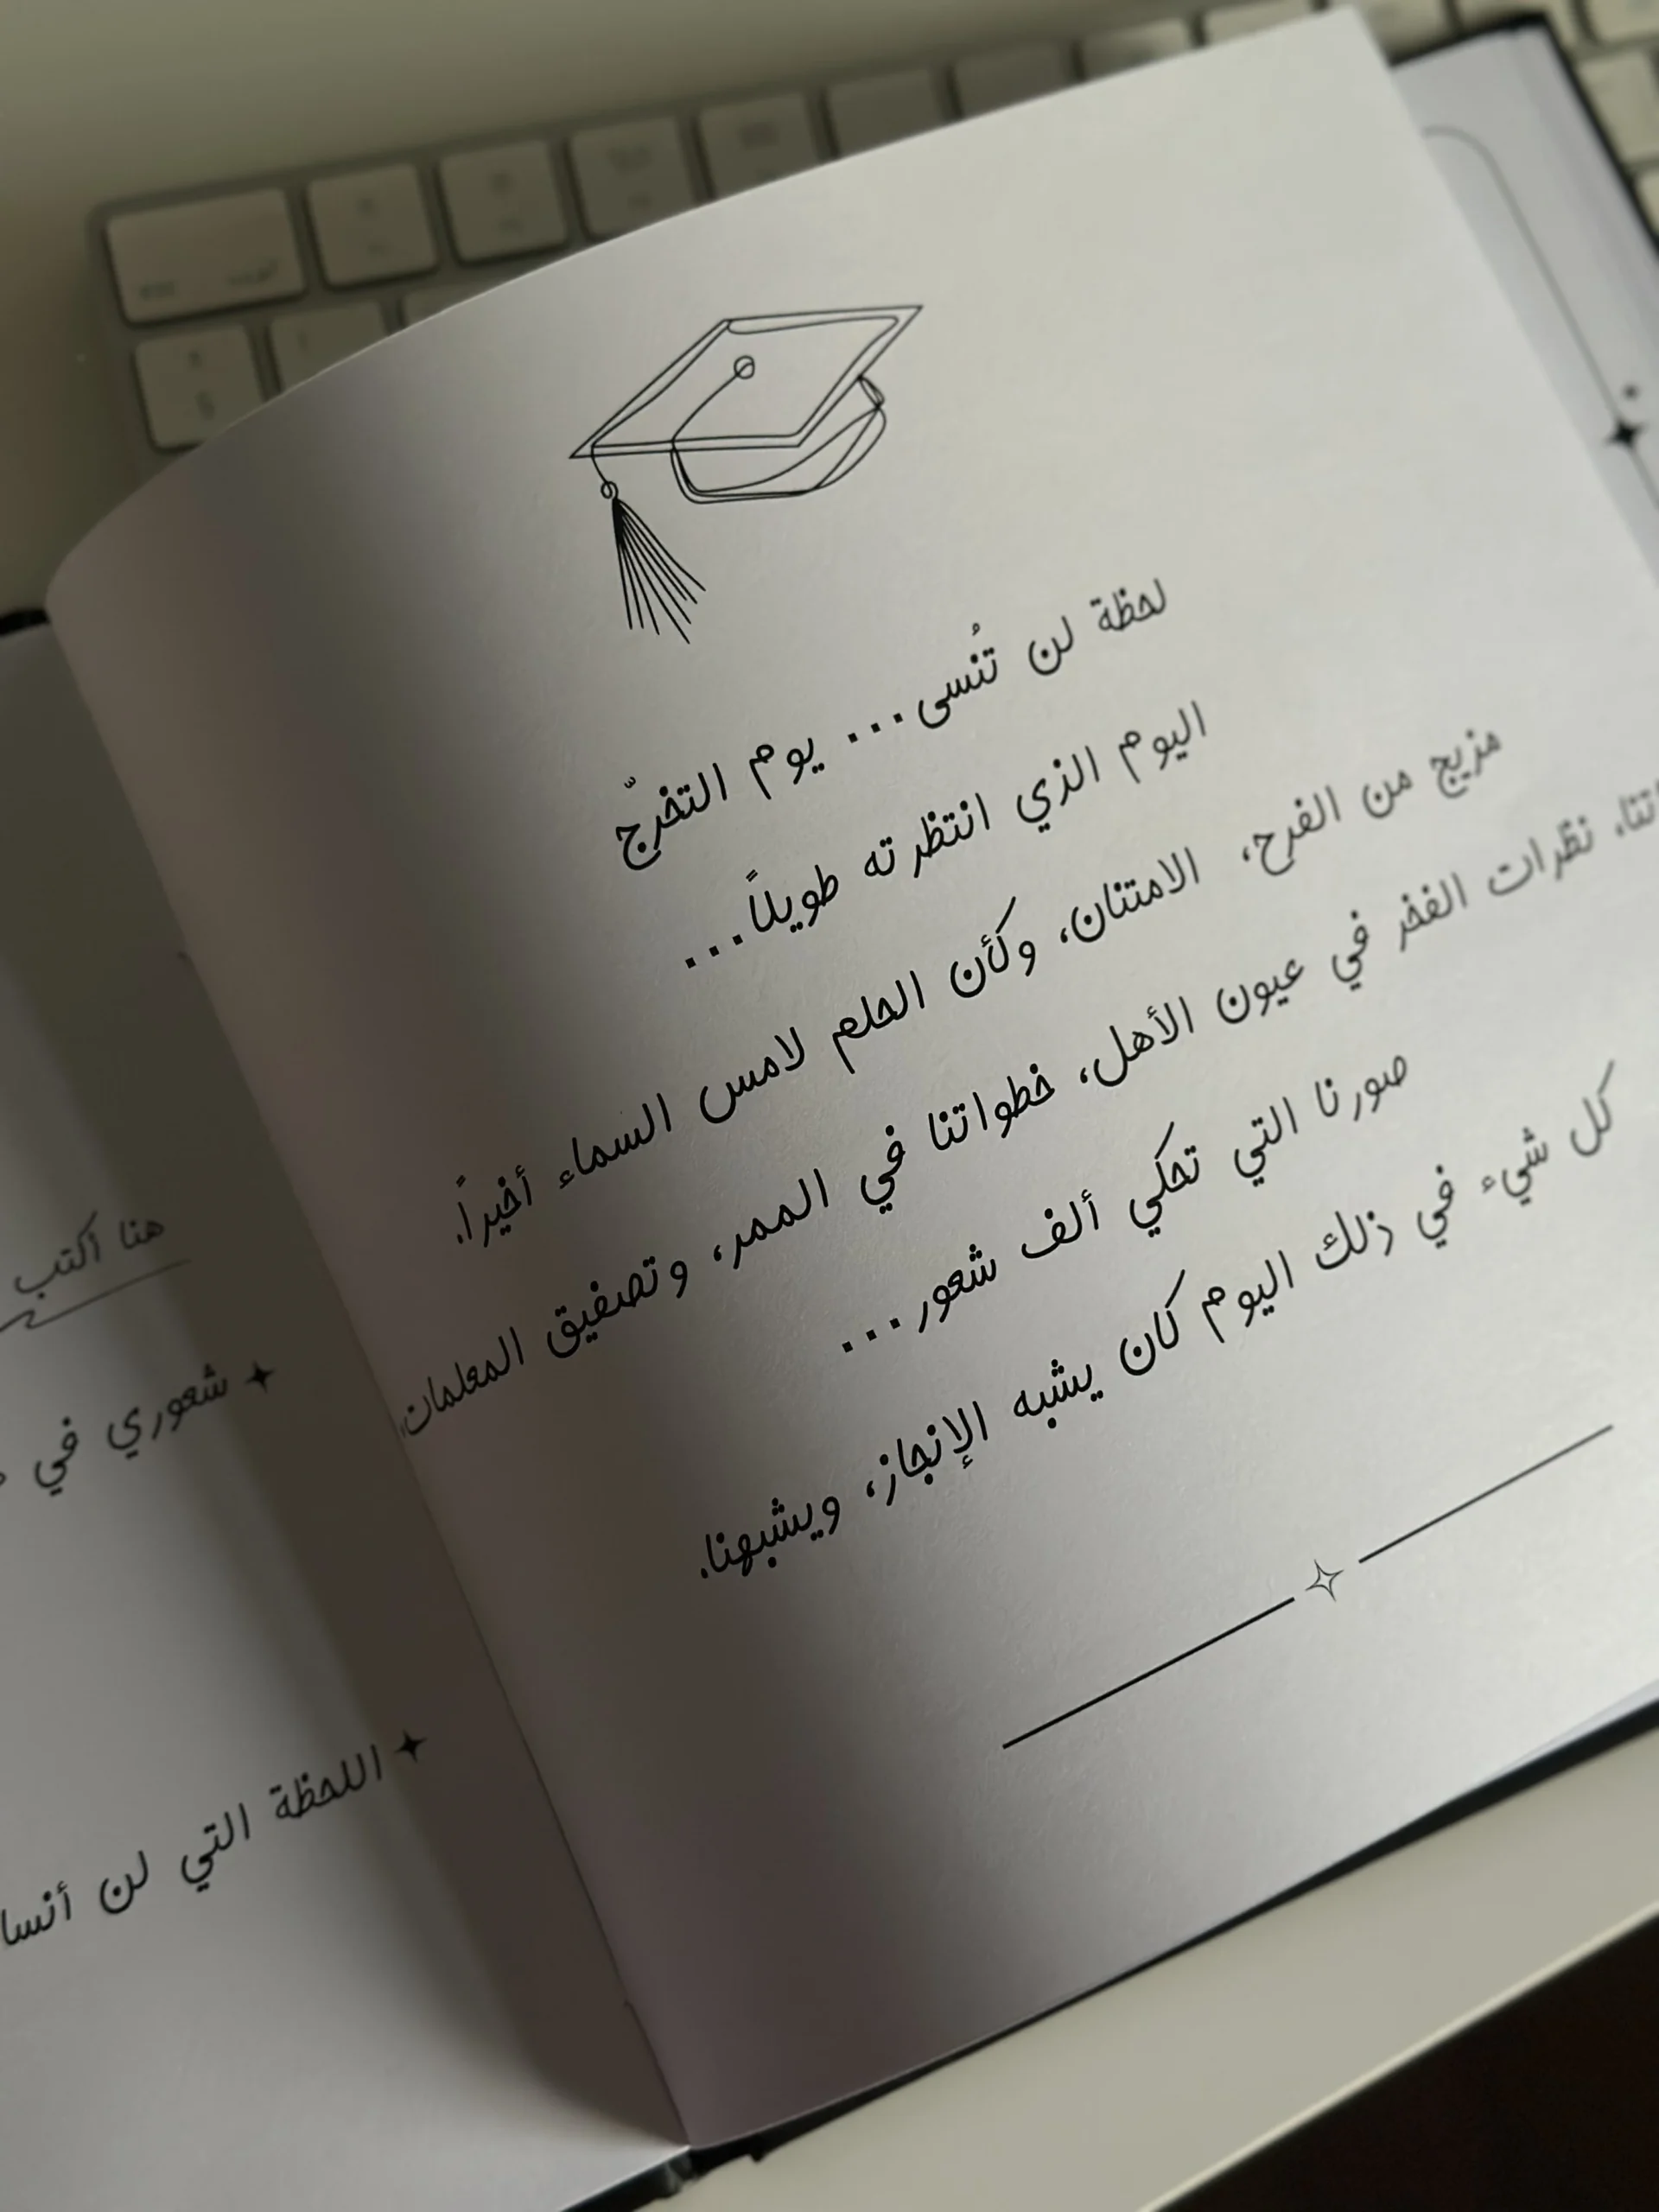 لحظة لن تُنسى... يوم التخرجّ
اليوم الذي انتظرته طويلاً...
مزيج من الفرح، الامتنان، وكأن الحلم لامس السماء أخيراً.
نظرات الفخر في عيون الأهل، خطواتنا في الممر، وتصفيق المعلمات،
صورنا التي تحكي ألف شعور...
كل شيء في ذلك اليوم كان يشبه الإنجاز، ويشبهنا.
هنا أكتب
شعوري في
اللحظة التي لن